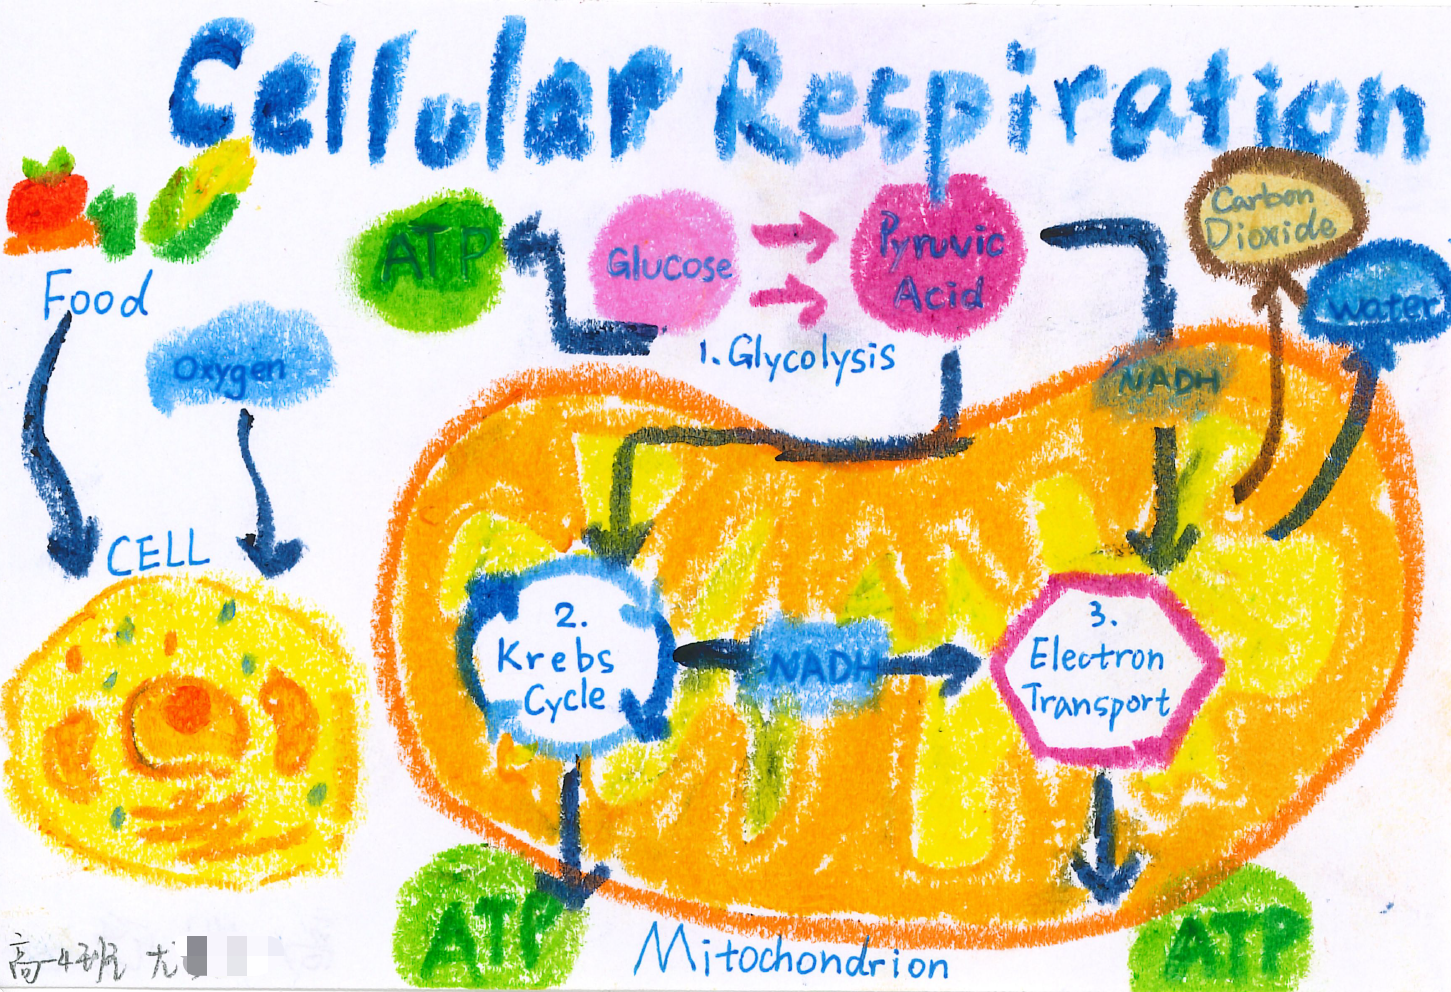 Cellular Respiration
Food
Oxygen
CELL
ATP
Glucose
Pyruvic
Acid
1. Glycolysis
Carbon
Dioxide
Water
NADH
2.
Krebs
Cycle
NADH
3.
Electron
Transport
ATP
Mitochondrion
ATP
高一4班 尤